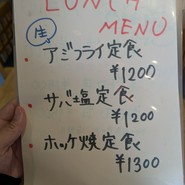 LUNCH
MENU
生
・アジフライ定食
¥1200
・サバ塩定食
¥1200
・ホッケ焼定食
¥1300